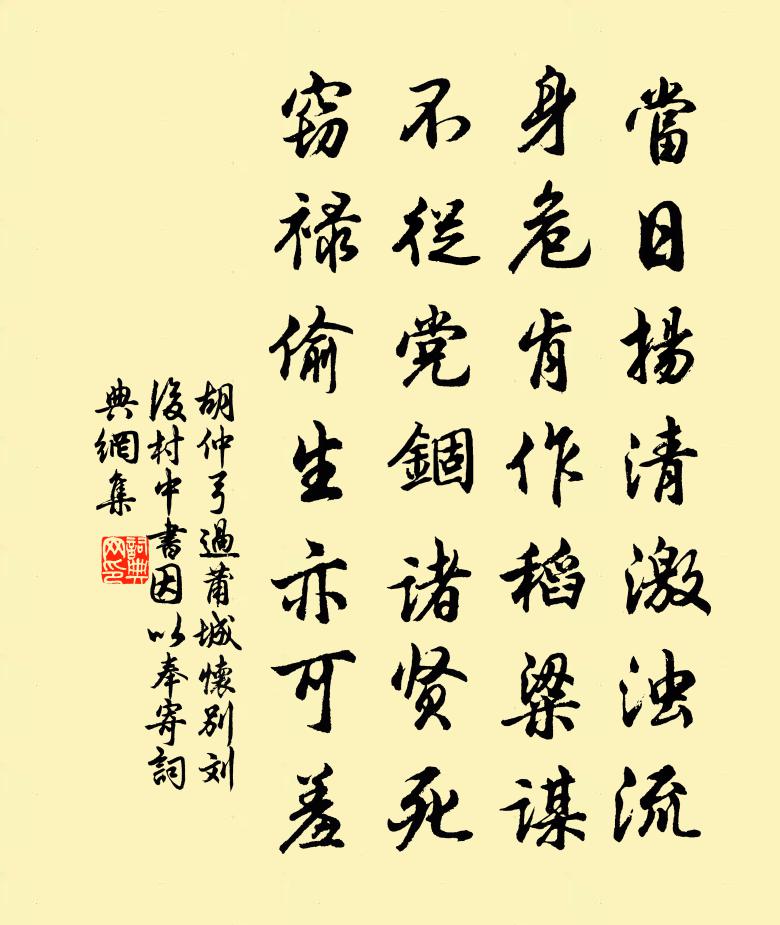 當日揚清激浊流
身危肯作稻粱謀
不從党錮诸贤死
窃禄偷生亦可羞
胡仲弓過莆城懷别刘
後村中書因以奉寄詞
典網集
詞典
网印